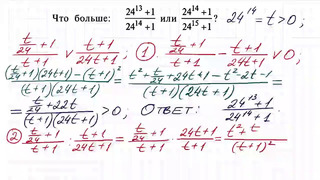 Что больше: \frac{24^{13}+1}{24^{14}+1} или \frac{24^{14}+1}{24^{15}+1}? 24^{14} = t > 0;
\frac{\frac{t}{24}+1}{t+1} ∨ \frac{t+1}{24t+1}; ① \frac{\frac{t}{24}+1}{t+1} - \frac{t+1}{24t+1} ∨ 0;
\frac{(\frac{t}{24}+1)(24t+1)-(t+1)^2}{(t+1)(24t+1)} = \frac{t^2+\frac{t}{24}+24t+1-t^2-2t-1}{(t+1)(24t+1)} =
= \frac{\frac{t}{24}+22t}{(t+1)(24t+1)} > 0; Ответ: \frac{24^{13}+1}{24^{14}+1}
② \frac{\frac{t}{24}+1}{t+1} : \frac{t+1}{24t+1} = \frac{\frac{t}{24}+1}{t+1} · \frac{24t+1}{t+1} = \frac{t^2+t}{(t+1)^2}